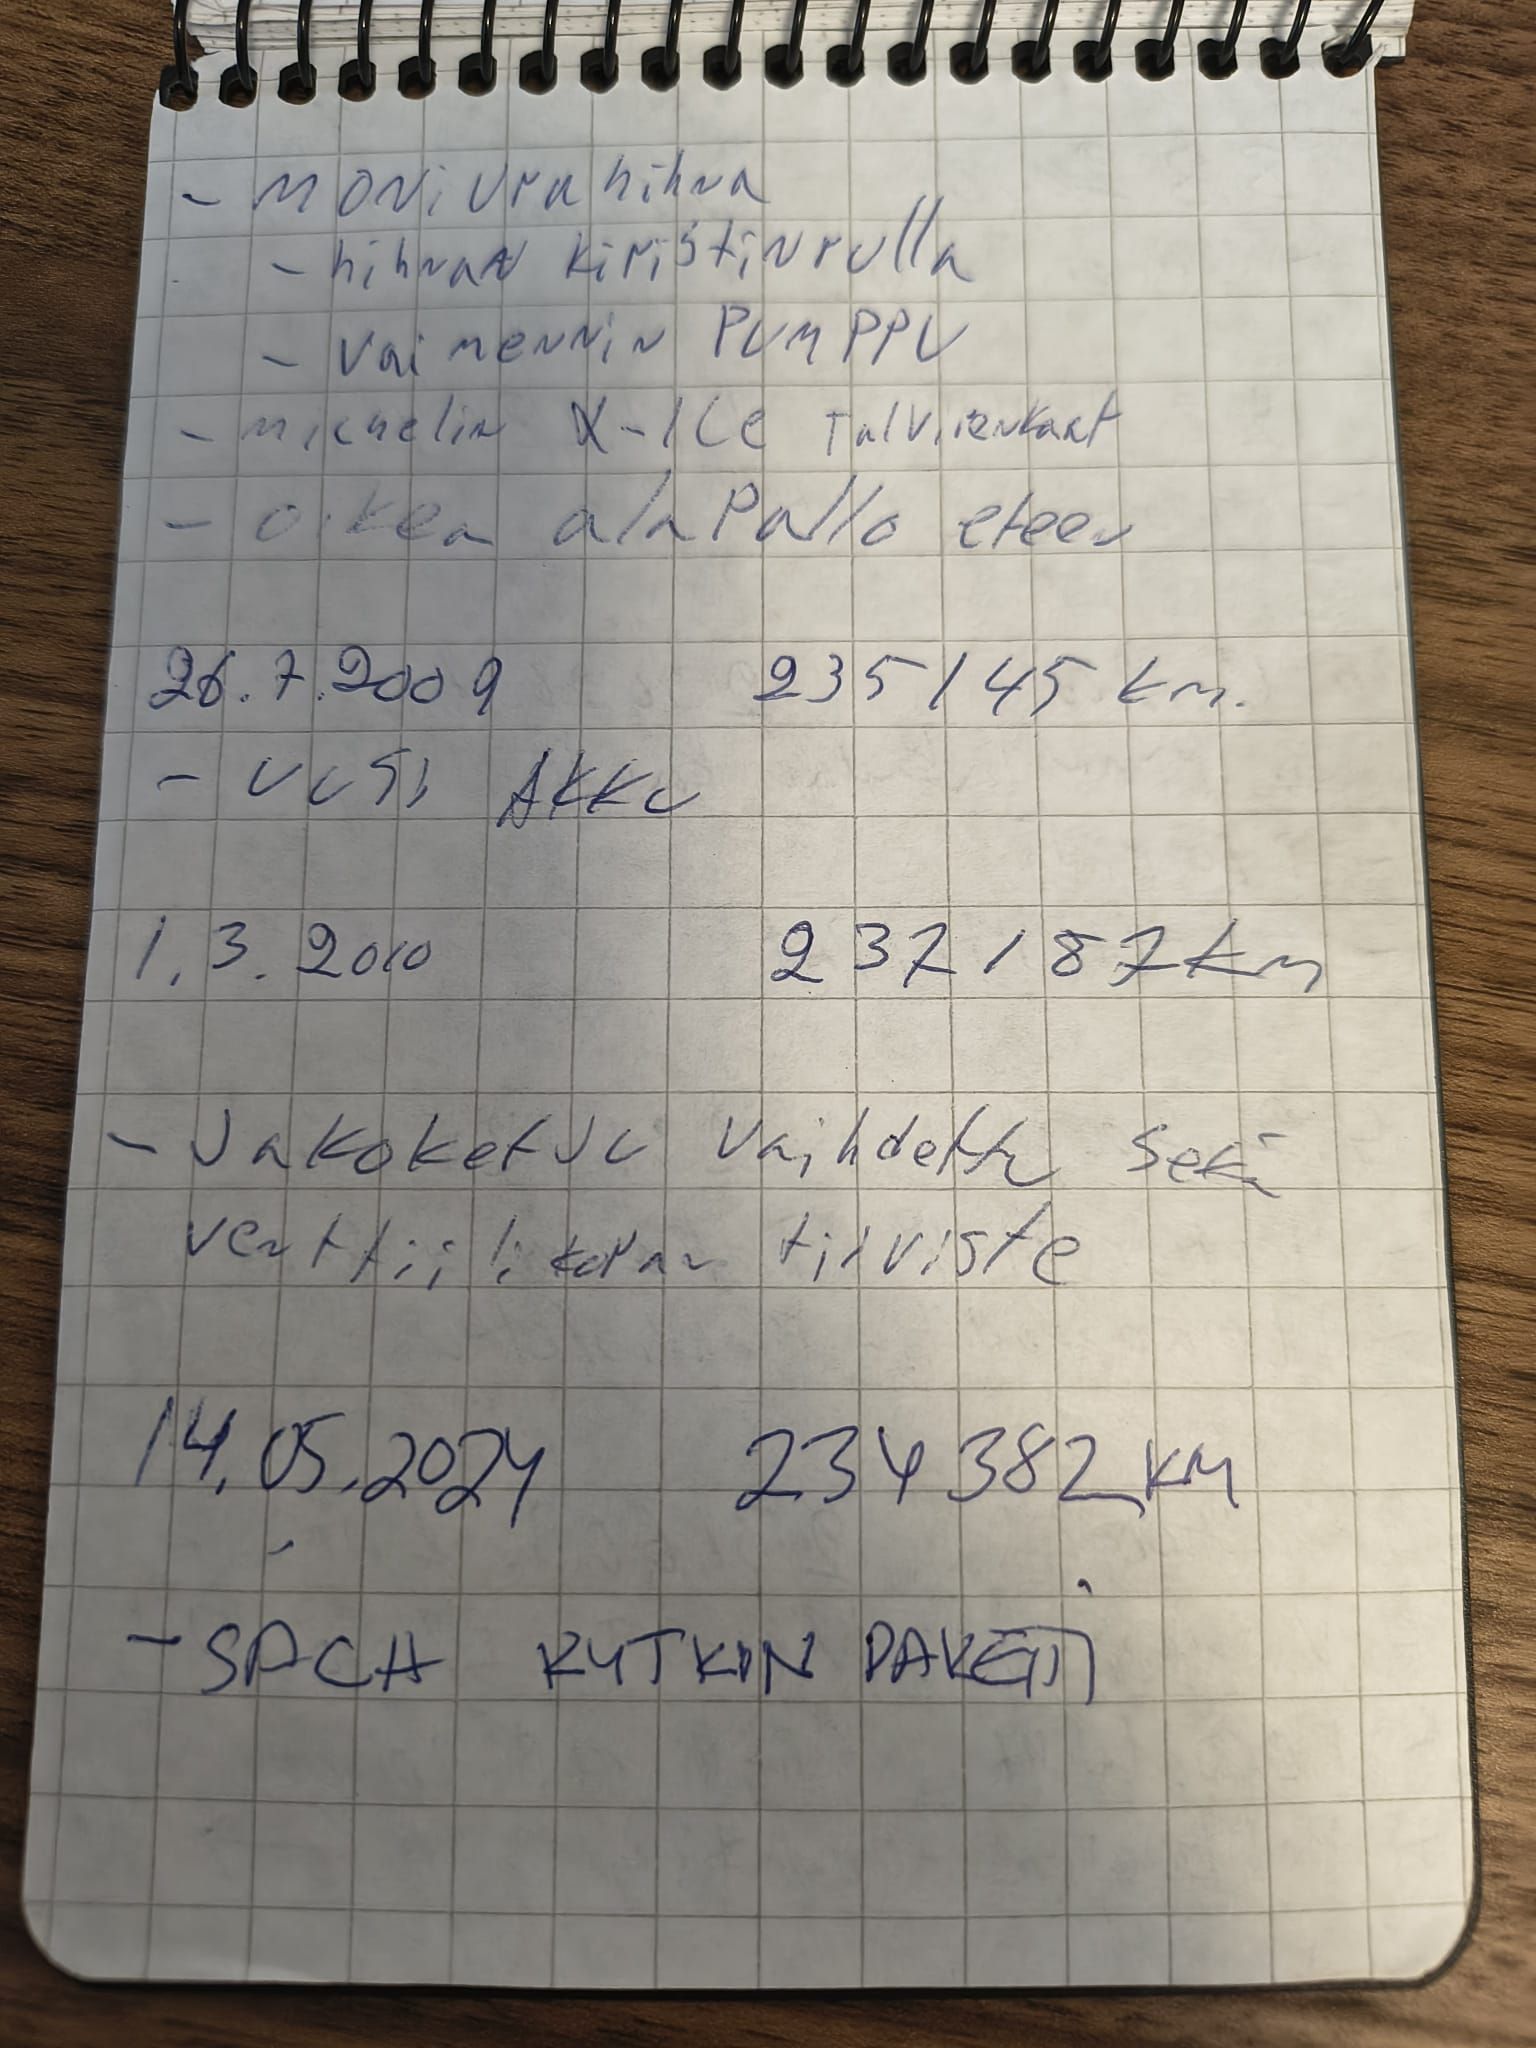 - MONiurahihna
- hihnan kiristinrulla
- Vaimennin PUMPPU
- Michelin X-ICE Talvirenkaat
- Oikea alaPallo eteen
26.7.2009 235145 km.
- UUSI AKKU
1.3.2010 237187km
- Jakoketju vaihdettu sekä
venttiilikopan tiiviste
14.05.2024 234382 KM
- SACH KYTKIN PAKETTI